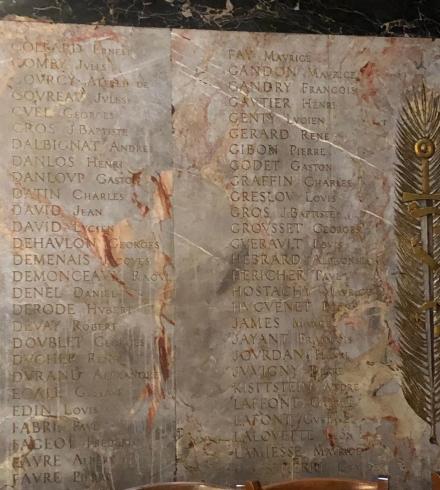 COLLARD ERNEST
COMBY JVLES
COVRCY ALFRED DE
GOVREAV JVLES
CVEL GEORGES
CROS J.BAPTISTE
DALBIGNAT ANDRE
DANLOS HENRI
DANLOVP GASTON
DATIN CHARLES
DAVID JEAN
DAVID LVCIEN
DEHAVLON GEORGES
DEMENAIS JACQVES
DEMONCEAVX RAOVL
DENEL DANIEL
DERODE HVBERT
DEVAY ROBERT
DOVBLET GEORGES
DVCHER RENE
DVRAND ALEXANDRE
EDALE GVSTAVE
EDIN LOVIS
FABRI PAVL
FAGEOL FREDERIC
FAVRE ALBERT
FAVRE PIERRE
FAY MAVRICE
GANDON MAVRICE
GANDRY FRANCOIS
GAVTIER HENRI
GENTY LVCIEN
GERARD RENE
GIBON PIERRE
GODET GASTON
GRAFFIN CHARLES
GRESLOV LOVIS
GROS J.BAPTISTE
GROVSSET GEORGES
GVERAVLT LOVIS
HEBRARD ALPHONSE
HERICHER PAVL
HOSTACHY MAVRICE
HVGVENET
JAMES
JAYANT FRANCOIS
JOVRDAN HENRI
JVVIGNY PIERRE
KISTTSTEIN ANDRE
LAFFONT
LAFONT GVSTAVE
LALOVETTE LEON
LAMIESSE MAVRICE